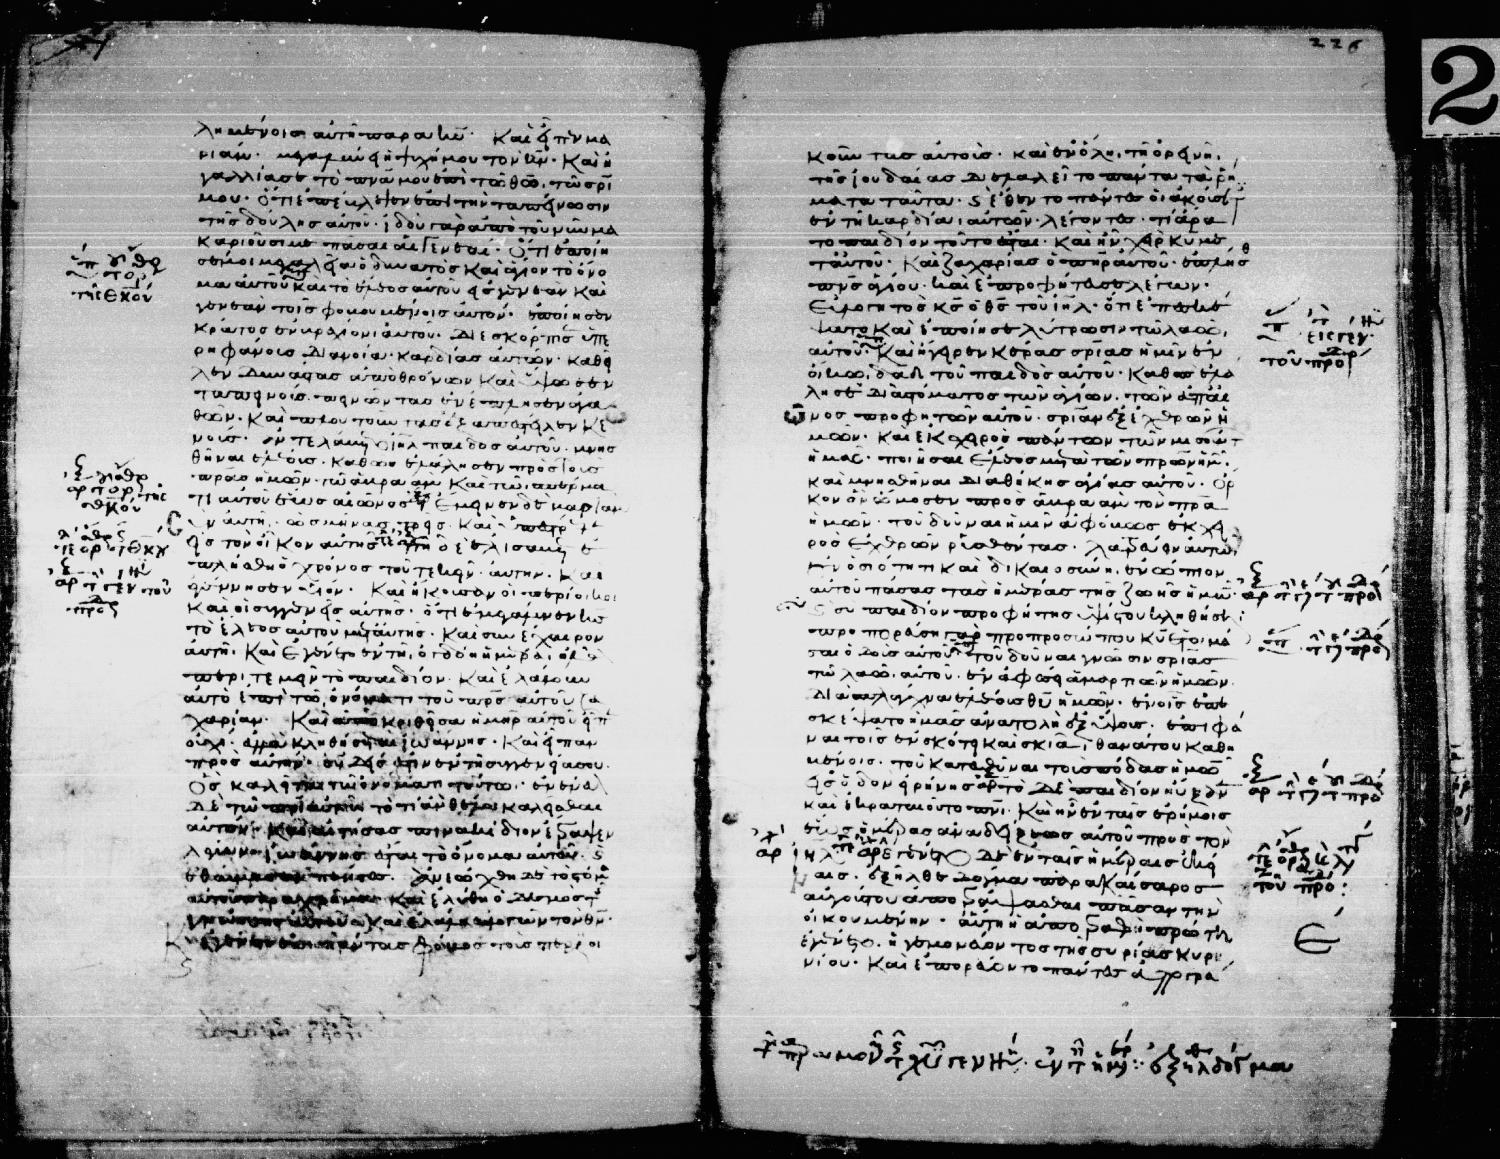 λημένοις αὐτῇ παρὰ κυ. Καὶ εἶπεν μα
ριάμ. μεγαλύνει ἡ ψυχή μου τὸν κν. Καὶ ἠ
γαλλίασε τὸ πνα μου ἐπὶ τῷ θω, τῷ σρι
μου. ὅτι ἐπέβλεψεν ἐπὶ τὴν ταπείνωσιν
τῆς δούλης αὐτοῦ. ἰδοὺ γὰρ ἀπὸ τοῦ νῦν μα
καριοῦσί με πᾶσαι αἱ γενεαί. Ὅτι ἐποίη
σέν μοι μεγαλεῖα ὁ δυνατὸς καὶ ἅγιον τὸ ὄνο
μα αὐτοῦ καὶ τὸ ἔλεος αὐτοῦ εἰς γενεὰν καὶ
γενεὰν τοῖς φοβουμένοις αὐτόν. ἐποίησεν
κράτος ἐν βραχίονι αὐτοῦ. Διεσκόρπισεν ὑπε
ρηφάνους διανοίᾳ καρδίας αὐτῶν. καθεῖ
λεν δυνάστας ἀπὸ θρόνων καὶ ὕψωσεν
ταπεινούς. πεινῶντας ἐνέπλησεν ἀγα
θῶν. Καὶ πλουτοῦντας ἐξαπέστειλεν κε
νούς. ἀντελάβετο ιηλ παιδὸς αὐτοῦ. μνησ
θῆναι ἐλέους. καθὼς ἐλάλησεν πρὸς τοὺς
πρας ἡμῶν. τῷ ἀβραὰμ καὶ τῷ σπέρμα
τι αὐτοῦ ἕως αἰῶνος. Ἔμεινεν δὲ μαριὰμ
σὺν αὐτῇ. ὡσεὶ μῆνας τρεῖς. Καὶ ὑπέστρε
εἰς τὸν οἶκον αὐτῆς. τῇ δὲ ἐλισάβετ ἐ
πλήσθη ὁ χρόνος τοῦ τεκεῖν αὐτήν. Καὶ
ἐγέννησεν υἱόν. Καὶ ἤκουσαν οἱ περίοικοι
καὶ οἱ συγγενεῖς αὐτῆς. ὅτι ἐμεγάλυνεν κς
τὸ ἔλεος αὐτοῦ μετ᾽ αὐτῆς. Καὶ συνέχαιρον
αὐτῇ. Καὶ ἐγένετο ἐν τῇ ὀγδόῃ ἡμέρᾳ, ἦλθον
περιτεμεῖν τὸ παιδίον. Καὶ ἐκάλουν
αὐτὸ ἐπὶ τῷ ὀνόματι τοῦ πρς αὐτοῦ ζα
χαρίαν. Καὶ ἀποκριθεῖσα ἡ μηρ αὐτοῦ εἶπεν
οὐχί. ἀλλὰ κληθήσεται ἰωάννης. Καὶ εἶπαν
πρὸς αὐτήν. ὅτι οὐδείς ἐστιν ἐν τῇ συγγενείᾳ σου.
Ὃς καλεῖται τῷ ὀνόματι τούτῳ. ἐνένευον
δὲ τῷ πρι αὐτοῦ τὸ τί ἂν θέλοι καλεῖσθαι
αὐτόν. Καὶ αἰτήσας πινακίδιον ἔγραψεν
λέγων. ἰωάννης ἔσται τὸ ὄνομα αὐτοῦ.
ἐθαύμασαν πάντες. Ἀνεῴχθη δὲ τὸ στόμα
αὐτοῦ παραχρῆμα. Καὶ ἐλύθη ὁ δεσμὸς τ
γλώσσης αὐτοῦ. Καὶ ἐλάλει εὐλογῶν τὸν θν.
Καὶ ἐγένετο ἐπὶ πάντας φόβος τοὺς περιοι
226
κοῦντας αὐτούς. καὶ ἐν ὅλῃ τῇ ὀρεινῇ
τῆς ἰουδαίας διελαλεῖτο πάντα τὰ ῥή
ματα ταῦτα. Καὶ ἔθεντο πάντες οἱ ἀκούσαν
ἐν τῇ καρδίᾳ αὐτῶν. λέγοντες. τί ἄρα
τὸ παιδίον τοῦτο ἔσται. Καὶ ἦν χεὶρ κυ μετ
αὐτοῦ. Καὶ ζαχαρίας ὁ πηρ αὐτοῦ. ἐπλήσθ
πνς ἁγίου. καὶ ἐπροφήτευσε λέγων.
Εὐλογητὸς κς ὁ θς τοῦ ιηλ. ὅτι ἐπεσκέ
ψατο καὶ ἐποίησε λύτρωσιν τῷ λαῷ
αὐτοῦ. Καὶ ἤγειρεν κέρας σριας ἡμῖν ἐν
οἴκῳ δαδ τοῦ παιδὸς αὐτοῦ. Καθὼς ἐλά
λησε διὰ στόματος τῶν ἁγίων. τῶν ἀπ᾽ αἰῶ
νος προφητῶν αὐτοῦ. σριαν ἐξ ἐχθρῶν ἡ
μῶν. Καὶ ἐκ χειρὸς πάντων τῶν μισούντ
ἡμᾶς. ποιῆσαι ἔλεος μετὰ τῶν πρων ἡμῶν
καὶ μνησθῆναι διαθήκης ἁγίας αὐτοῦ. Ὅρ
κον ὃν ὤμοσεν πρὸς ἀβραὰμ τὸν πρα
ἡμῶν. τοῦ δοῦναι ἡμῖν ἀφόβως ἐκ χει
ρὸς ἐχθρῶν ῥυσθέντας. λατρεύειν αὐτῷ
ἐν ὁσιότητι καὶ δικαιοσύνῃ. ἐνώπιον
αὐτοῦ πάσας τὰς ἡμέρας τῆς ζωῆς ἡμῶν
Καὶ σὺ παιδίον προφήτης ὑψίστου κληθήσῃ
προπορεύσῃ γὰρ πρὸ προσώπου κυ ἑτοιμά
σαι ὁδοὺς αὐτοῦ. τοῦ δοῦναι γνῶσιν σριας
τῷ λαῷ αὐτοῦ. ἐν ἀφέσει ἁμαρτιῶν ἡμῶν.
Διὰ σπλάγχνα ἐλέους θυ ἡμῶν. ἐν οἷς ἐπε
σκέψατο ἡμᾶς ἀνατολὴ ἐξ ὕψους. ἐπιφᾶ
ναι τοῖς ἐν σκότει καὶ σκιᾷ θανάτου καθη
μένοις. τοῦ κατευθῦναι τοὺς πόδας ἡμῶν
εἰς ὁδὸν εἰρήνης. τὸ δὲ παιδίον ηὔξαν
καὶ ἐκραταιοῦτο πνι. Καὶ ἦν ἐν ταῖς ἐρήμοις
ἕως ἡμέρας ἀναδείξεως αὐτοῦ πρὸς τὸν
ιηλ. Ἐγένετο δὲ ἐν ταῖς ἡμέραις ἐκεί
ναις. ἐξῆλθε δόγμα παρὰ καίσαρος
αὐγούστου ἀπογράψασθαι πᾶσαν τὴν
οἰκουμένην. αὕτη ἡ ἀπογραφὴ πρώτη
ἐγένετο. ἡγεμονεύοντος τῆς συρίας κυρη
νίου. Καὶ ἐπορεύοντο πάντες ἀπογρα
2